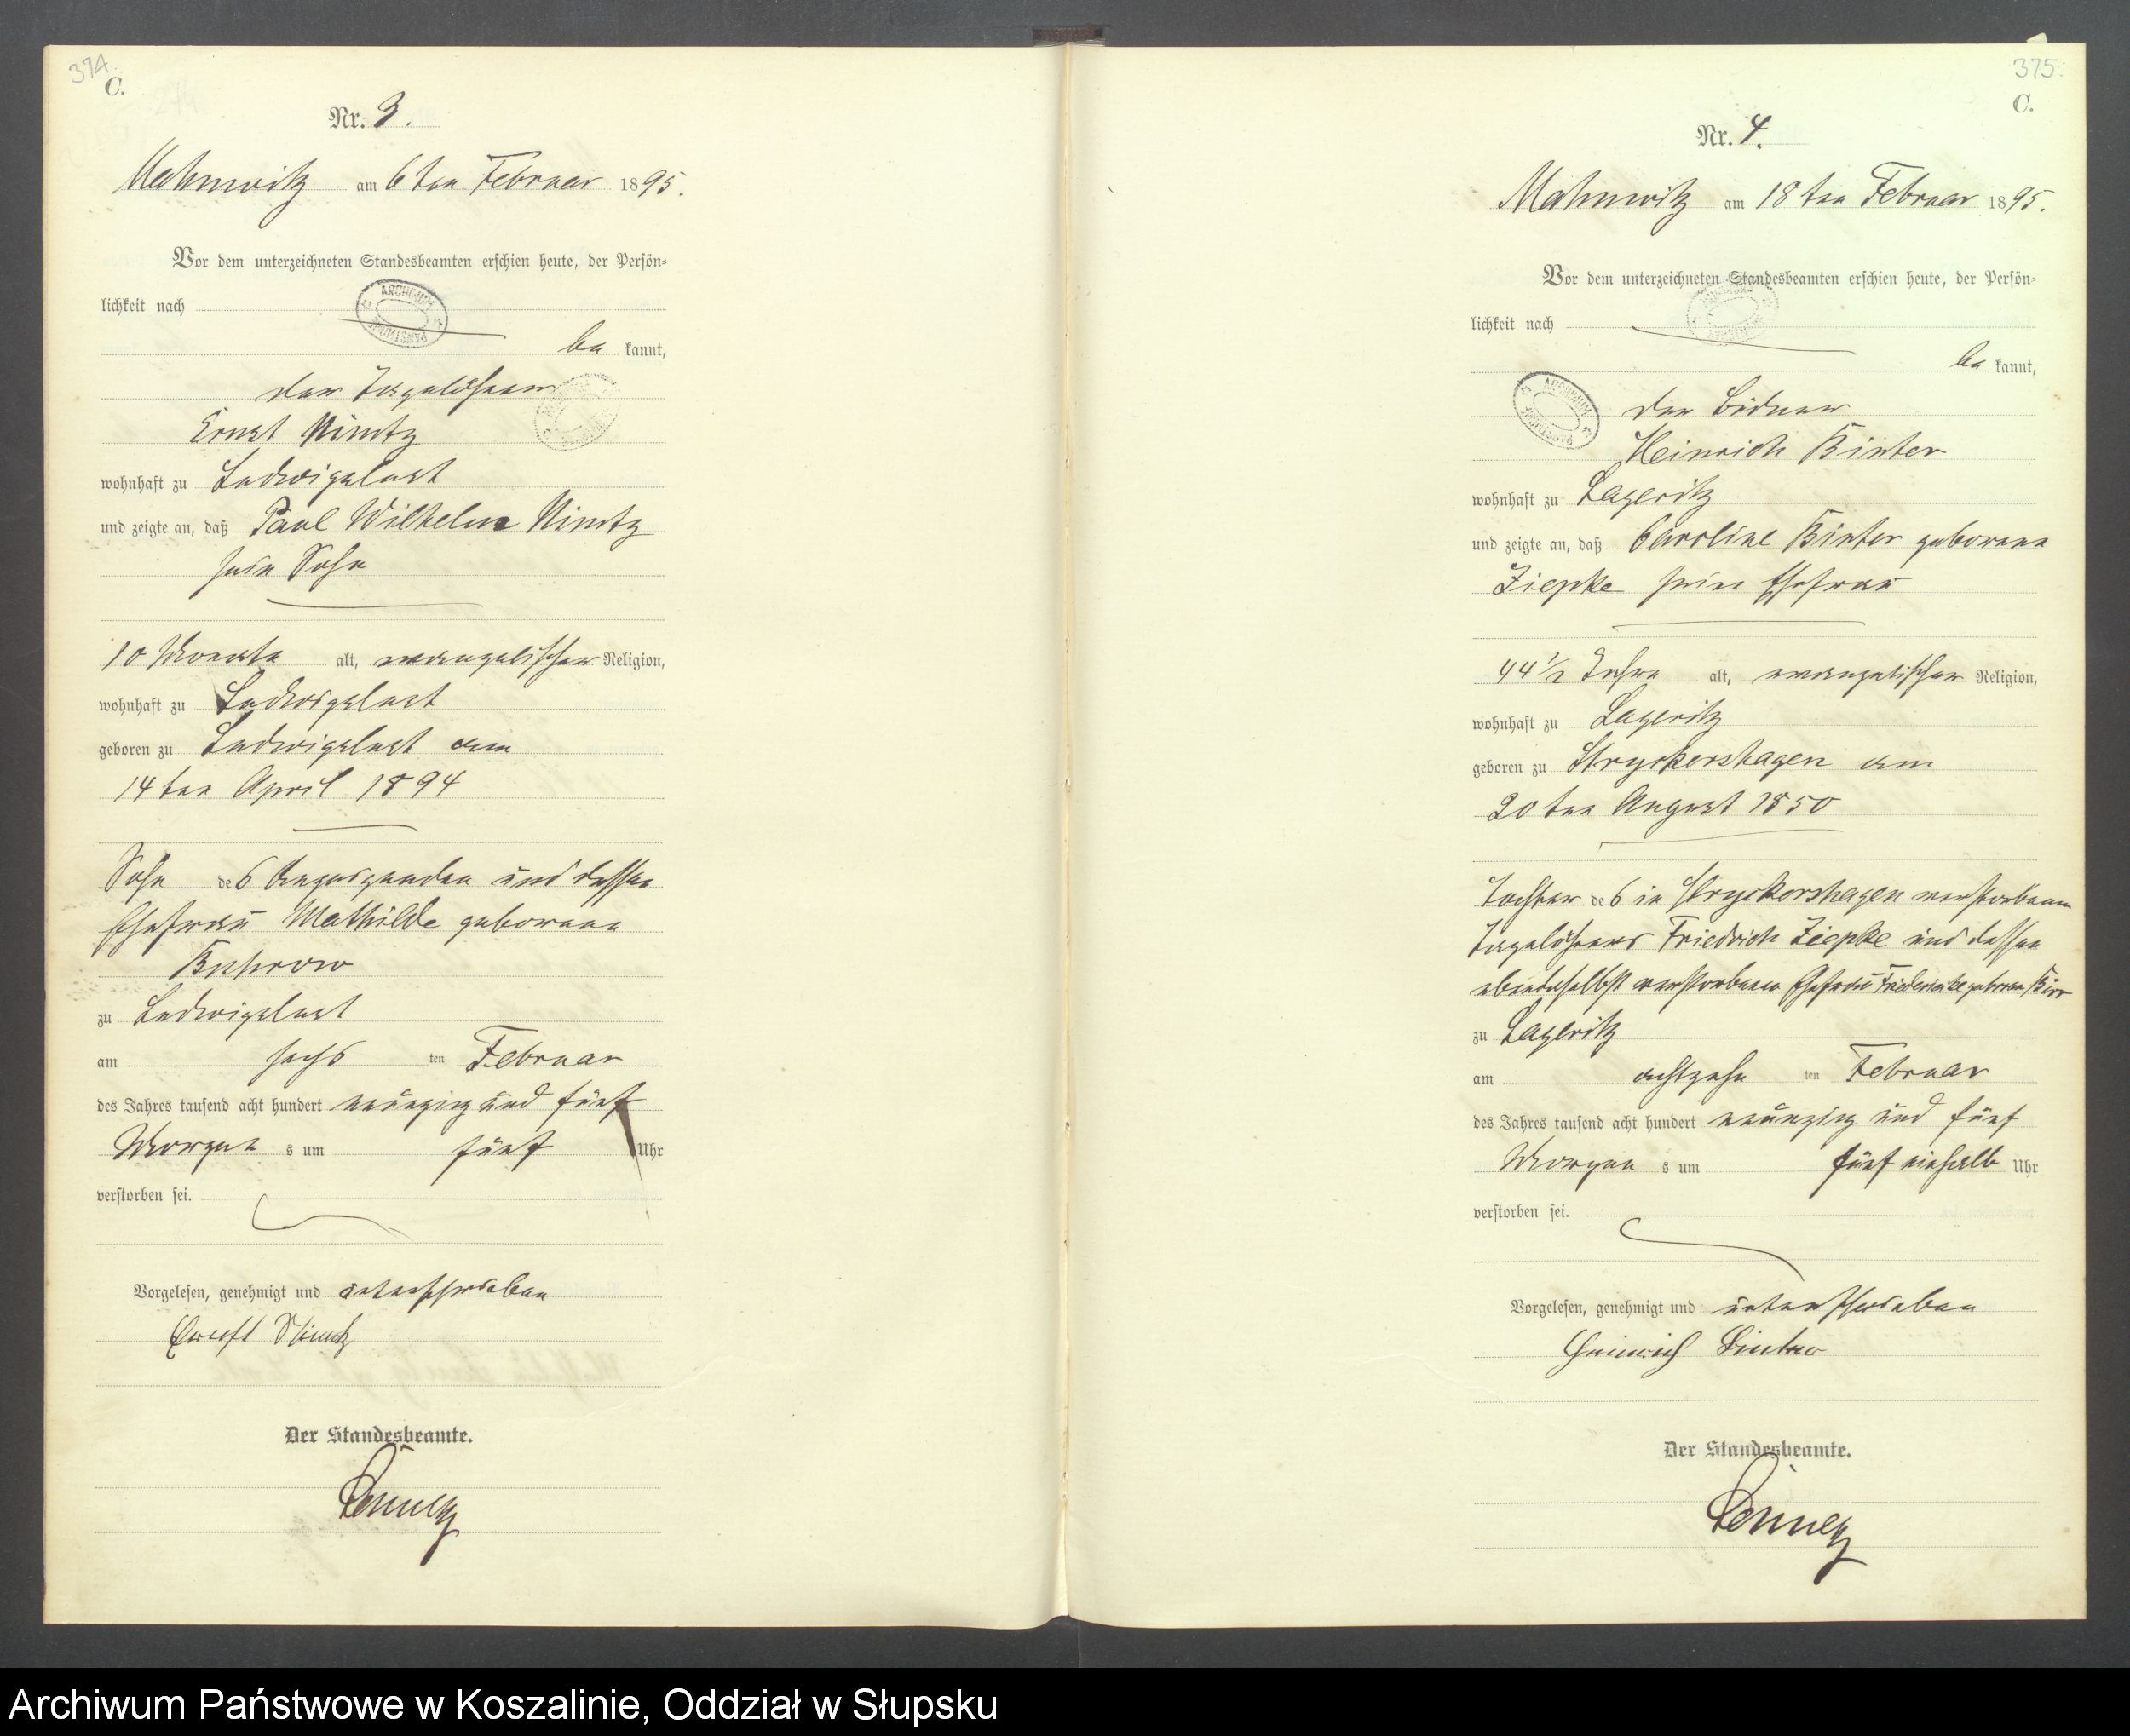 374.
C.
Nr. 3.
Mahnwitz am 6ten Februar 1895.
Vor dem unterzeichneten Standesbeamten erschien heute, der Persön-
lichkeit nach
be kannt,
der Tagelöhner
Ernst Nimtz
wohnhaft zu Ludwigslust
und zeigte an, daß Paul Wilhelm Nimtz
sein Sohn
10 Monate alt, evangelischer Religion,
wohnhaft zu Ludwigslust
geboren zu Ludwigslust am
14ten April 1894
Sohn des Anzeigenden und dessen
Ehefrau Mathilde geborene
zu Ludwigslust
am sechs ten Februar
des Jahres tausend acht hundert neunzig und fünf
Morgen s um fünf Uhr
verstorben sei.
Vorgelesen, genehmigt und unterschrieben
Ernst Nimtz
Der Standesbeamte.
375.
C.
Nr. 4.
Mahnwitz am 18ten Februar 1895.
Vor dem unterzeichneten Standesbeamten erschien heute, der Persön-
lichkeit nach
be kannt,
der Büdner
Heinrich Binter
wohnhaft zu
und zeigte an, daß Caroline Binter geborene
Ziepke seine Ehefrau
44 1/2 Jahre alt, evangelischer Religion,
wohnhaft zu
geboren zu Stryckershagen am
20ten August 1850
Tochter des in Stryckershagen verstorbenen
Tagelöhners Friedrich Ziepke und dessen
ebendaselbst verstorbenen Ehefrau Friederike geborene
zu
am achtzehn ten Februar
des Jahres tausend acht hundert neunzig und fünf
Morgen s um fünf einhalb Uhr
verstorben sei.
Vorgelesen, genehmigt und unterschrieben
Heinrich Binter
Der Standesbeamte.
Archiwum Państwowe w Koszalinie, Oddział w Słupsku